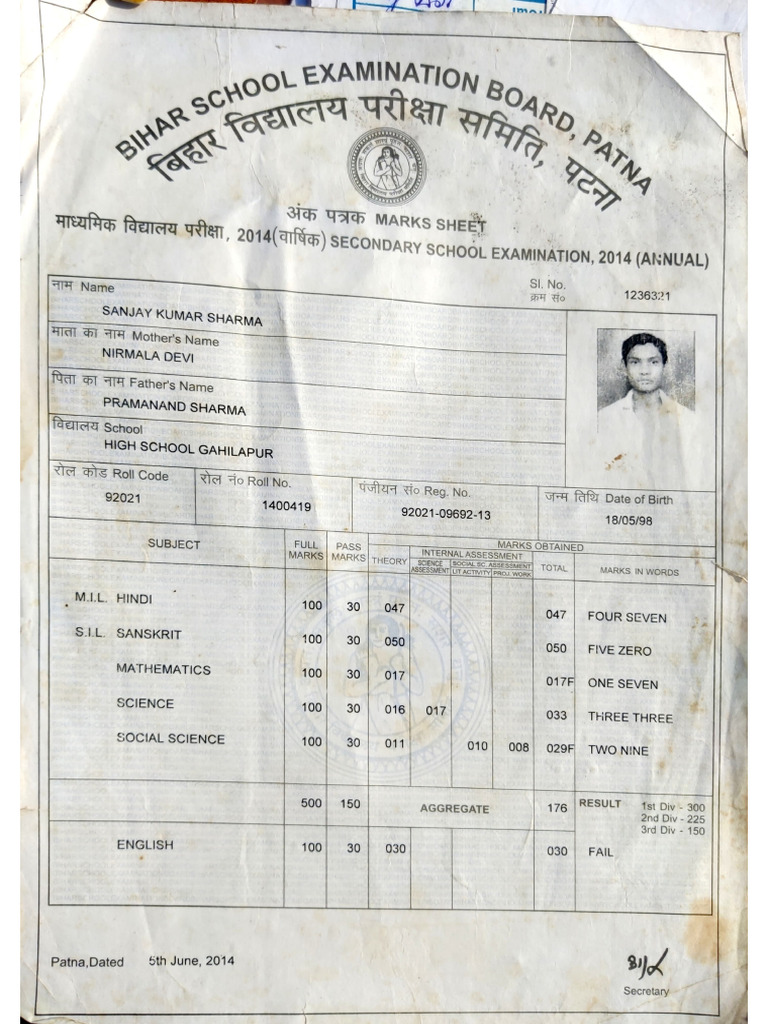 BIHAR SCHOOL EXAMINATION BOARD, PATNA
बिहार विद्यालय परीक्षा समिति, पटना
अंक पत्रक MARKS SHEET
माध्यमिक विद्यालय परीक्षा, 2014 (वार्षिक) SECONDARY SCHOOL EXAMINATION, 2014 (ANNUAL)
नाम Name
Sl. No.
क्रम सं० 1236321
SANJAY KUMAR SHARMA
माता का नाम Mother's Name
NIRMALA DEVI
पिता का नाम Father's Name
PRAMANAND SHARMA
विद्यालय School
HIGH SCHOOL GAHILAPUR
रोल कोड Roll Code रोल नं० Roll No. पंजीयन सं० Reg. No. जन्म तिथि Date of Birth
92021 1400419 92021-09692-13 18/05/98
SUBJECT FULL MARKS PASS MARKS MARKS OBTAINED
THEORY INTERNAL ASSESSMENT TOTAL MARKS IN WORDS
SCIENCE ASSESSMENT SOCIAL SC. ASSESSMENT
LIT ACTIVITY PROJ. WORK
M.I.L. HINDI 100 30 047 047 FOUR SEVEN
S.I.L. SANSKRIT 100 30 050 050 FIVE ZERO
MATHEMATICS 100 30 017 017F ONE SEVEN
SCIENCE 100 30 016 017 033 THREE THREE
SOCIAL SCIENCE 100 30 011 010 008 029F TWO NINE
500 150 AGGREGATE 176 RESULT 1st Div - 300
2nd Div - 225
3rd Div - 150
ENGLISH 100 30 030 030 FAIL
Patna,Dated 5th June, 2014
Secretary